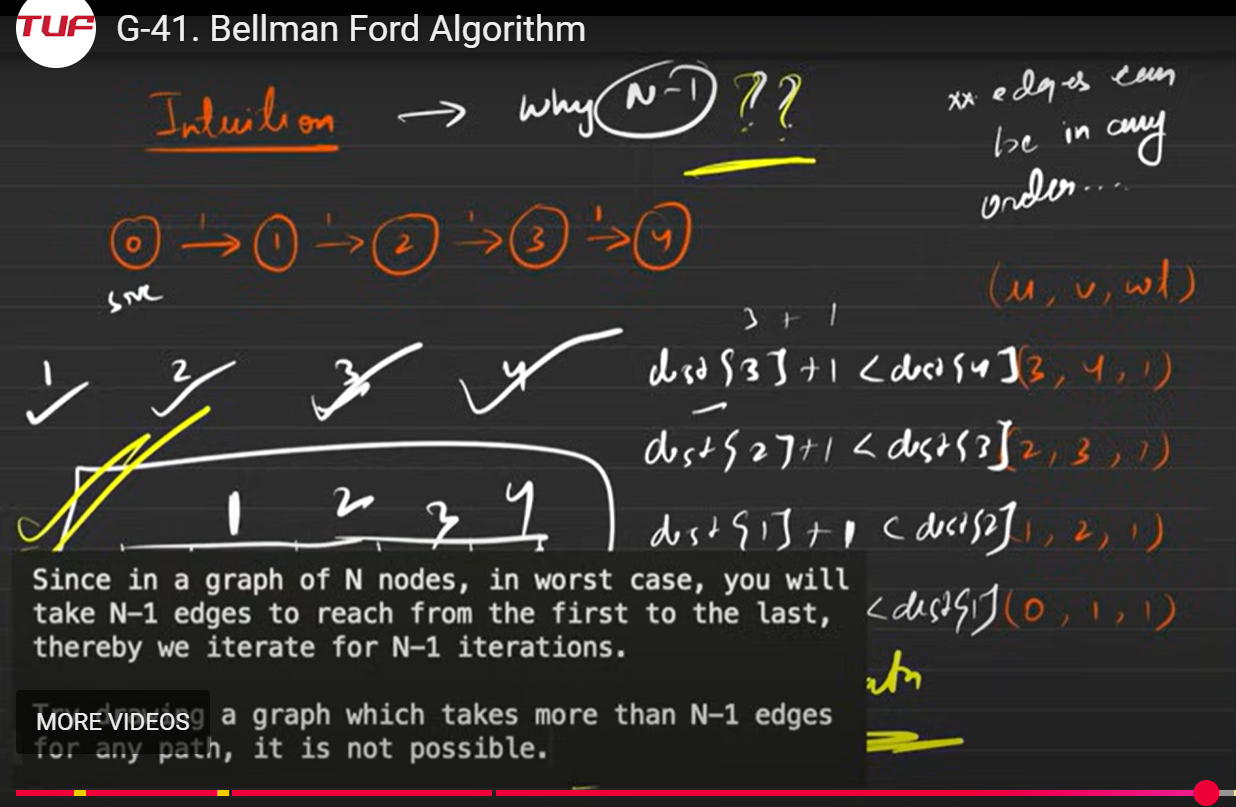 TUF G-41. Bellman Ford Algorithm
Intuition → Why N-1 ??
** edges can
be in any
order....
0 → 1 → 2 → 3 → 4
1 1 1 1
src
(u, v, wt)
3 + 1
1 2 3 4
dist[3]+1 < dist[4] (3, 4, 1)
dist[2]+1 < dist[3] (2, 3, 1)
1 2 3 4
dist[1]+1 < dist[2] (1, 2, 1)
< dist[1] (0, 1, 1)
Since in a graph of N nodes, in worst case, you will
take N-1 edges to reach from the first to the last,
thereby we iterate for N-1 iterations.
Try drawing a graph which takes more than N-1 edges
for any path, it is not possible.
MORE VIDEOS